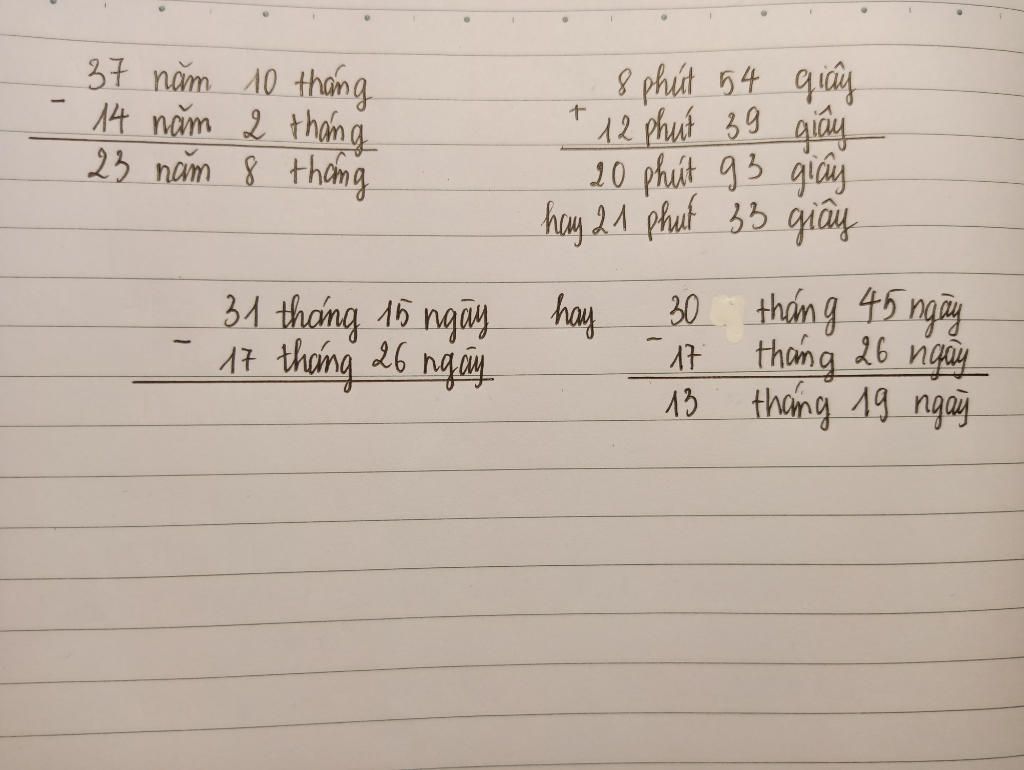 37 năm 10 tháng
- 14 năm 2 tháng
23 năm 8 tháng
8 phút 54 giây
+ 12 phút 39 giây
20 phút 93 giây
hay 21 phút 33 giây
31 tháng 15 ngày hay 30 tháng 45 ngày
- 17 tháng 26 ngày - 17 tháng 26 ngày
13 tháng 19 ngày